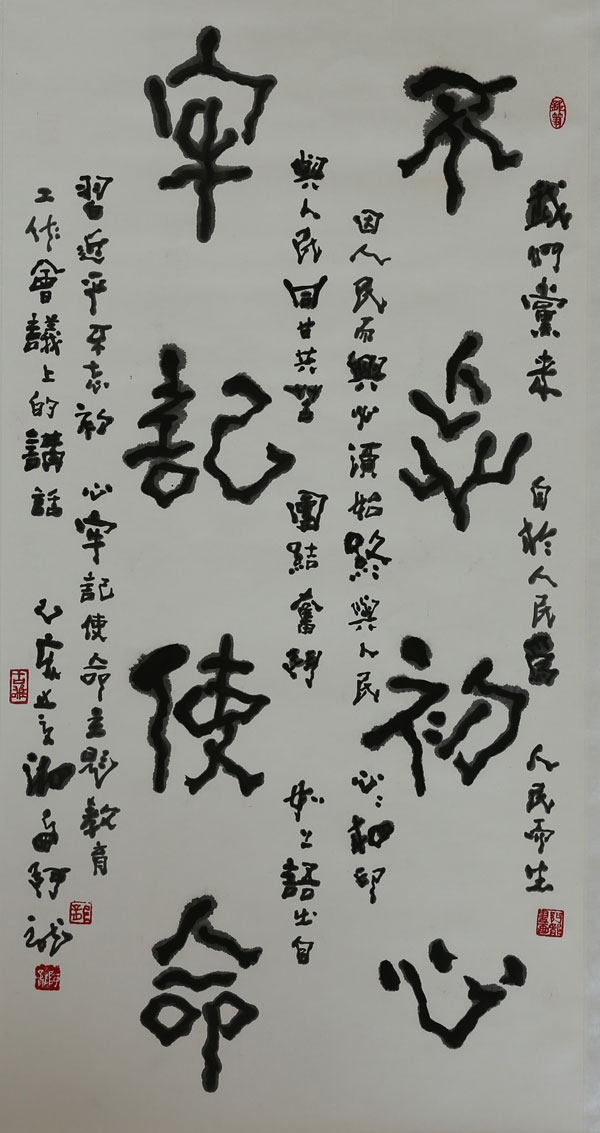 我們黨來自於人民為人民而生
不忘初心
因人民而興必須始終與人民心心相印
與人民同甘共苦團結奮鬥上語出自
牢記使命
習近平不忘初心牢記使命主題教育
工作會議上的講話